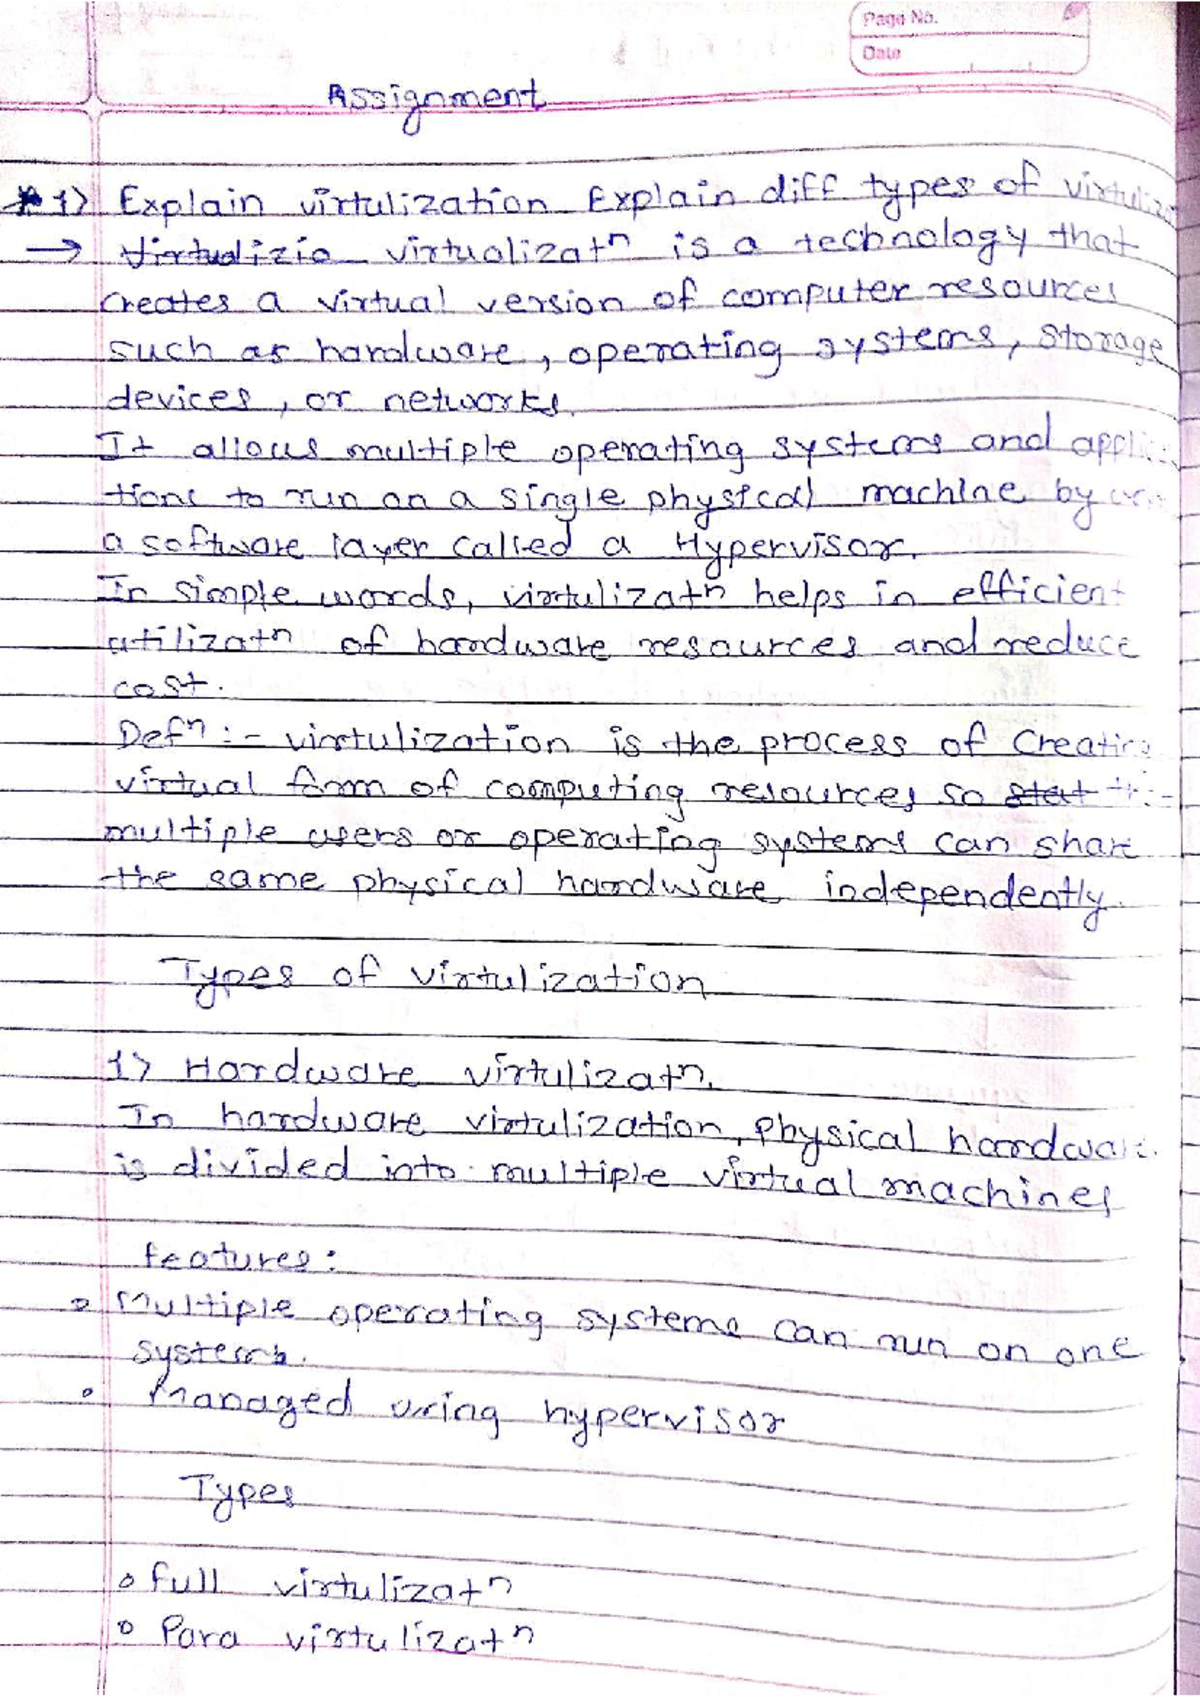 Page No.
Date
Assignment
* 1) Explain virtulization Explain diff types of
→ Virtudizio virtualizatⁿ is a technology that
Creates a virtual version of computer resources
such as hardware, operating systems, storage
devices, or networks.
It allows multiple operating systems and
tions to run on a single physical machine by
a software layer called a Hypervisor.
In simple words, virtulizatⁿ helps in efficient
utilizatⁿ of hardware resources and reduce
cost.
Defⁿ :- virtulization is the process of
virtual form of computing resources so stat
multiple users or operating systems can share
the same physical hardware independently.
Types of virtulization
1) Hardware virtulizatⁿ.
In hardware virtulization, physical
is divided into multiple virtual machines
features:
• Multiple operating systems can run on one
systems.
• Managed using hypervisor
Types
• full virtulizatⁿ
• Para virtulizatⁿ